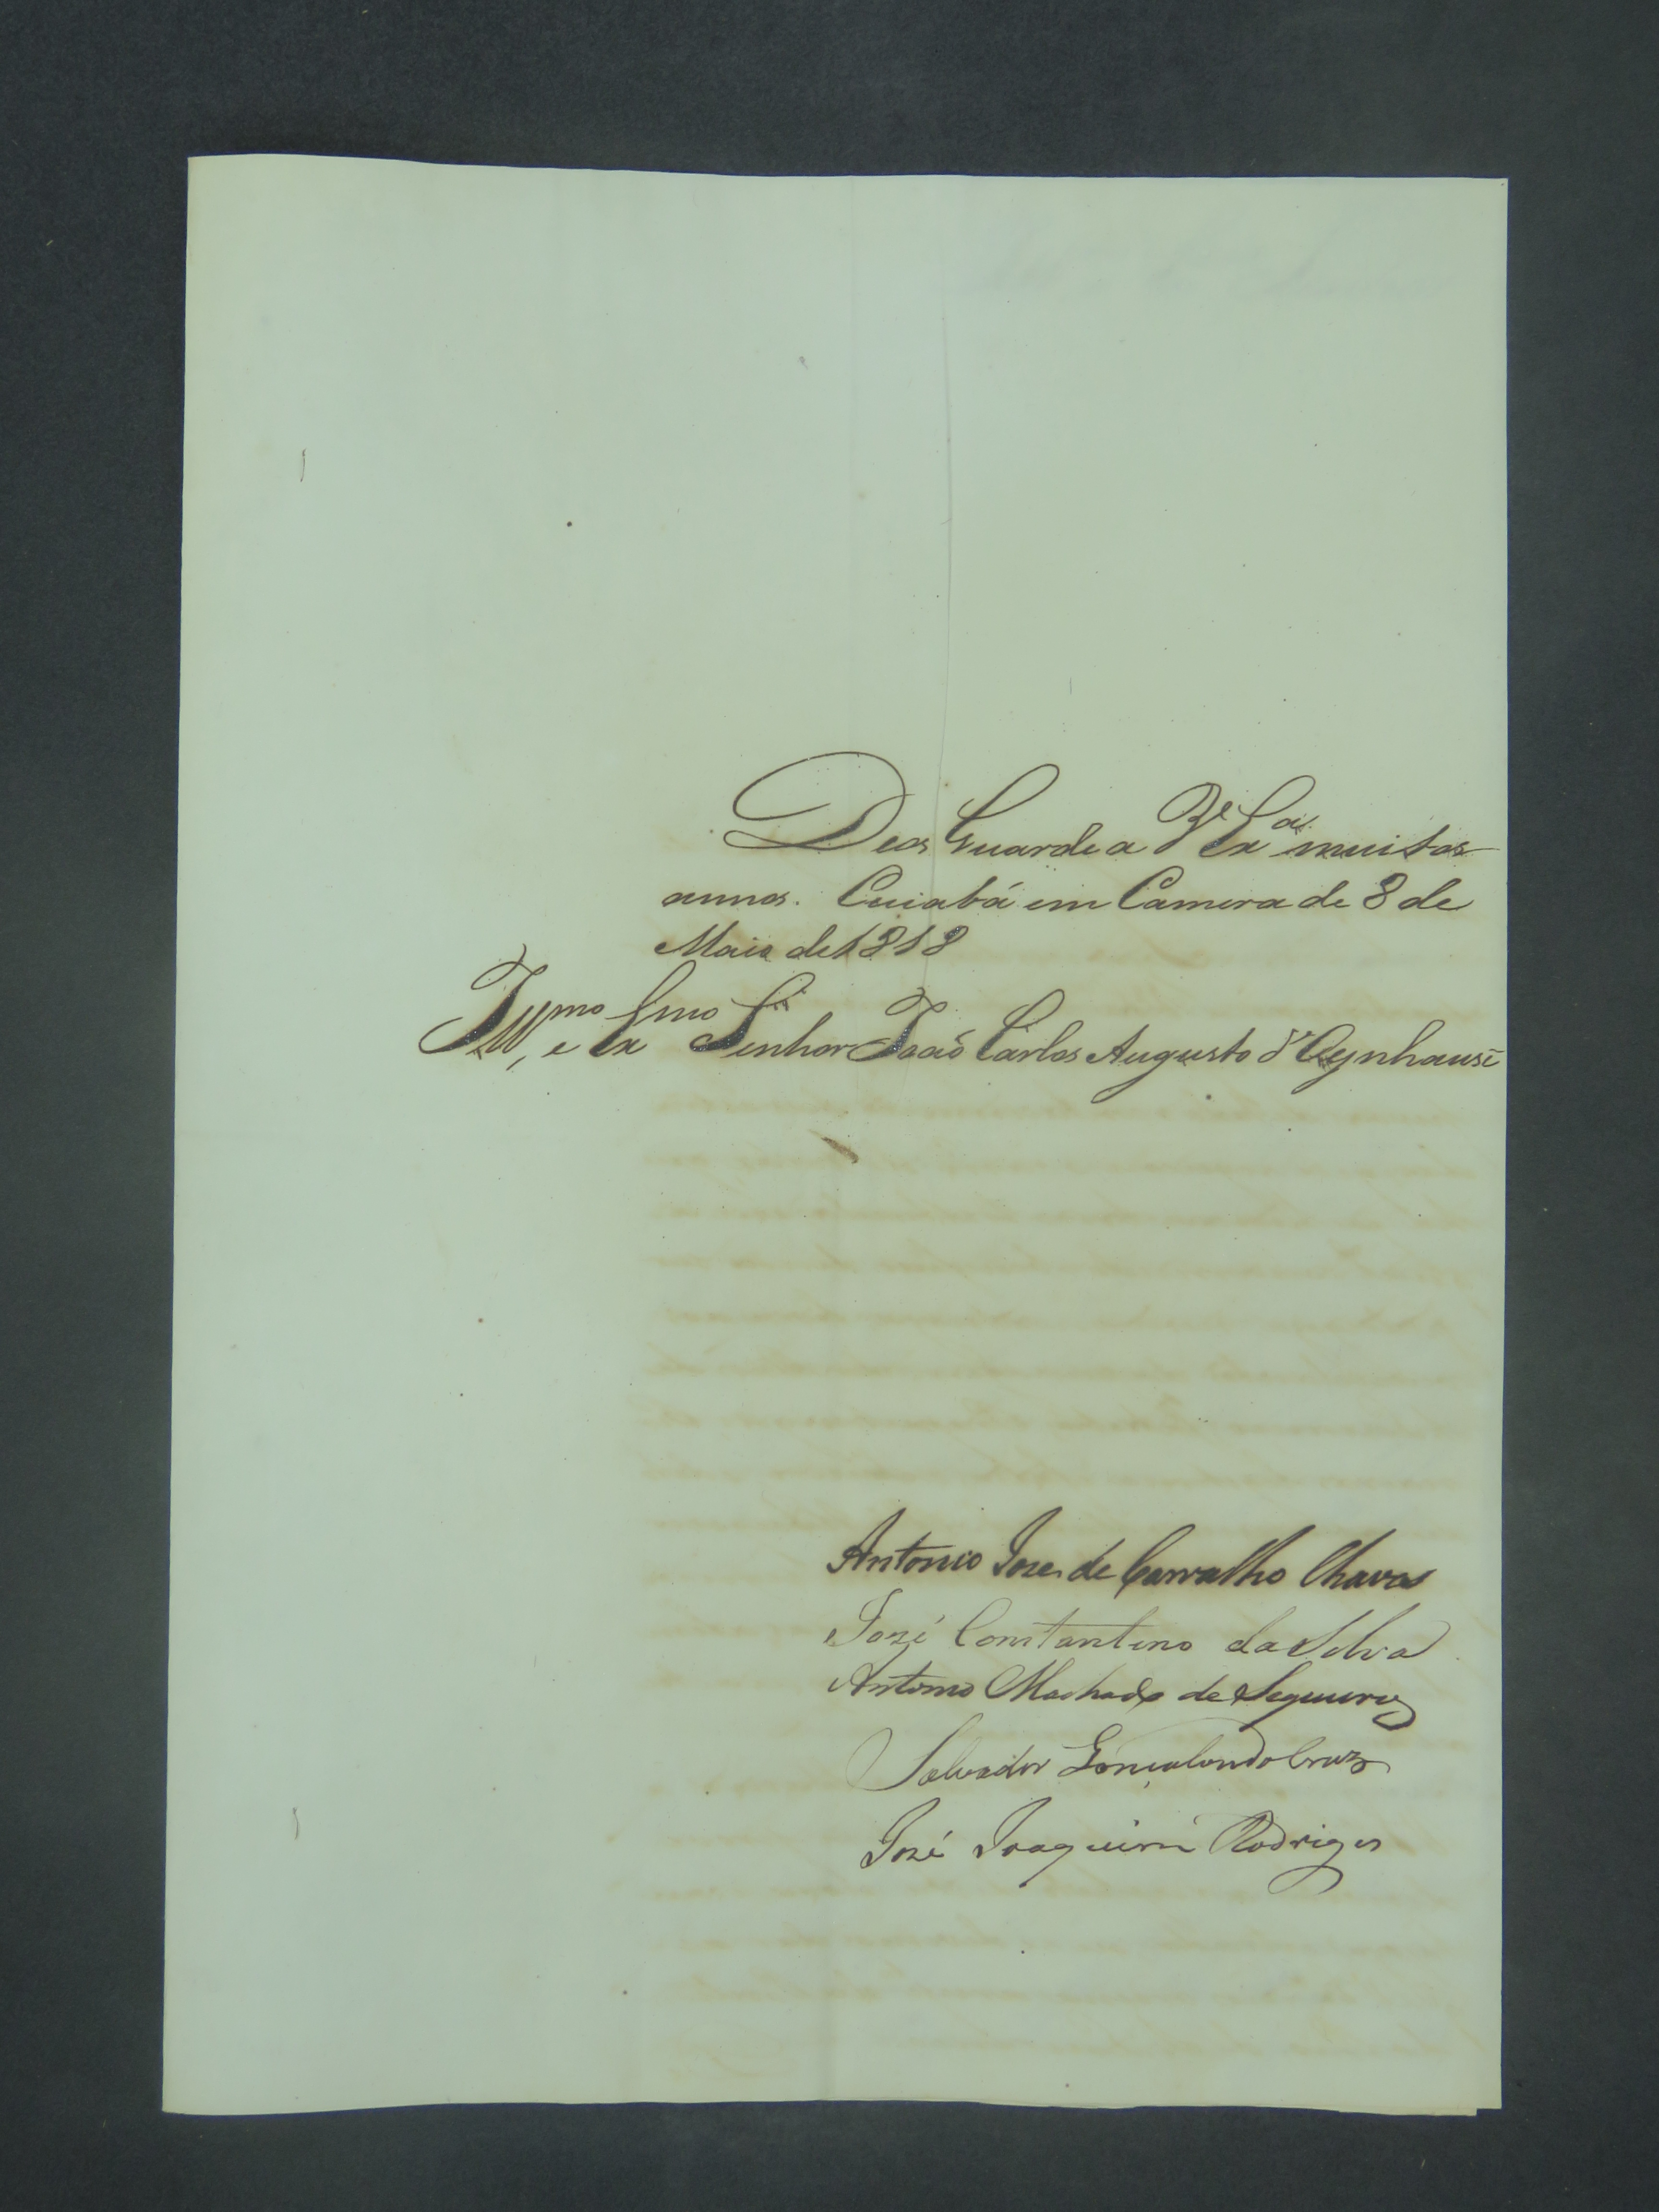 Deos Guarde a V.ᵉ Ex.ᵃ muitos
annos. Cuiabá em Camera de 8 de
Maio de 1818
Ill.ᵐᵒ, e Ex.ᵐᵒ Senhor João Carlos Augusto d'Oeynhausẽ
Antonio Joze de Carvalho Chaves
José Constantino da Silva
Antonio Machado de Sequeira
Salvador da Cruz
José Joaquim Rodrigues